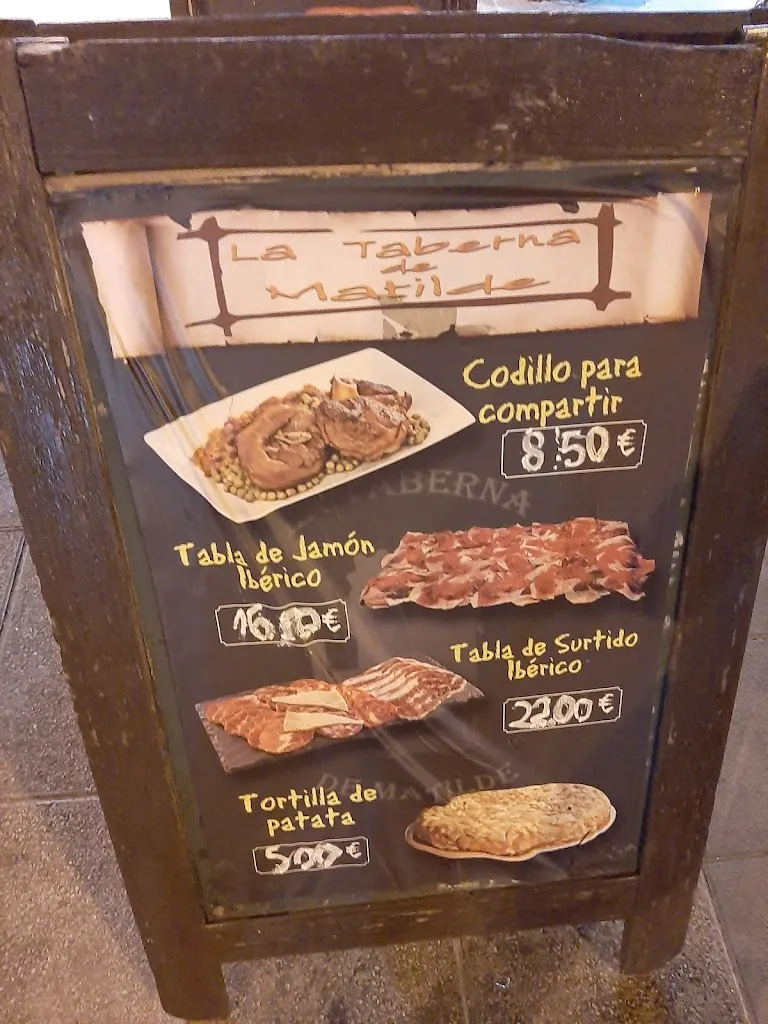 La Taberna
de
Matilde
Codillo para
compartir
8'50 €
TABERNA
Tabla de Jamón
Ibérico
€
Tabla de Surtido
Ibérico
22'00 €
DE MATILDE
Tortilla de
patata
5'00 €